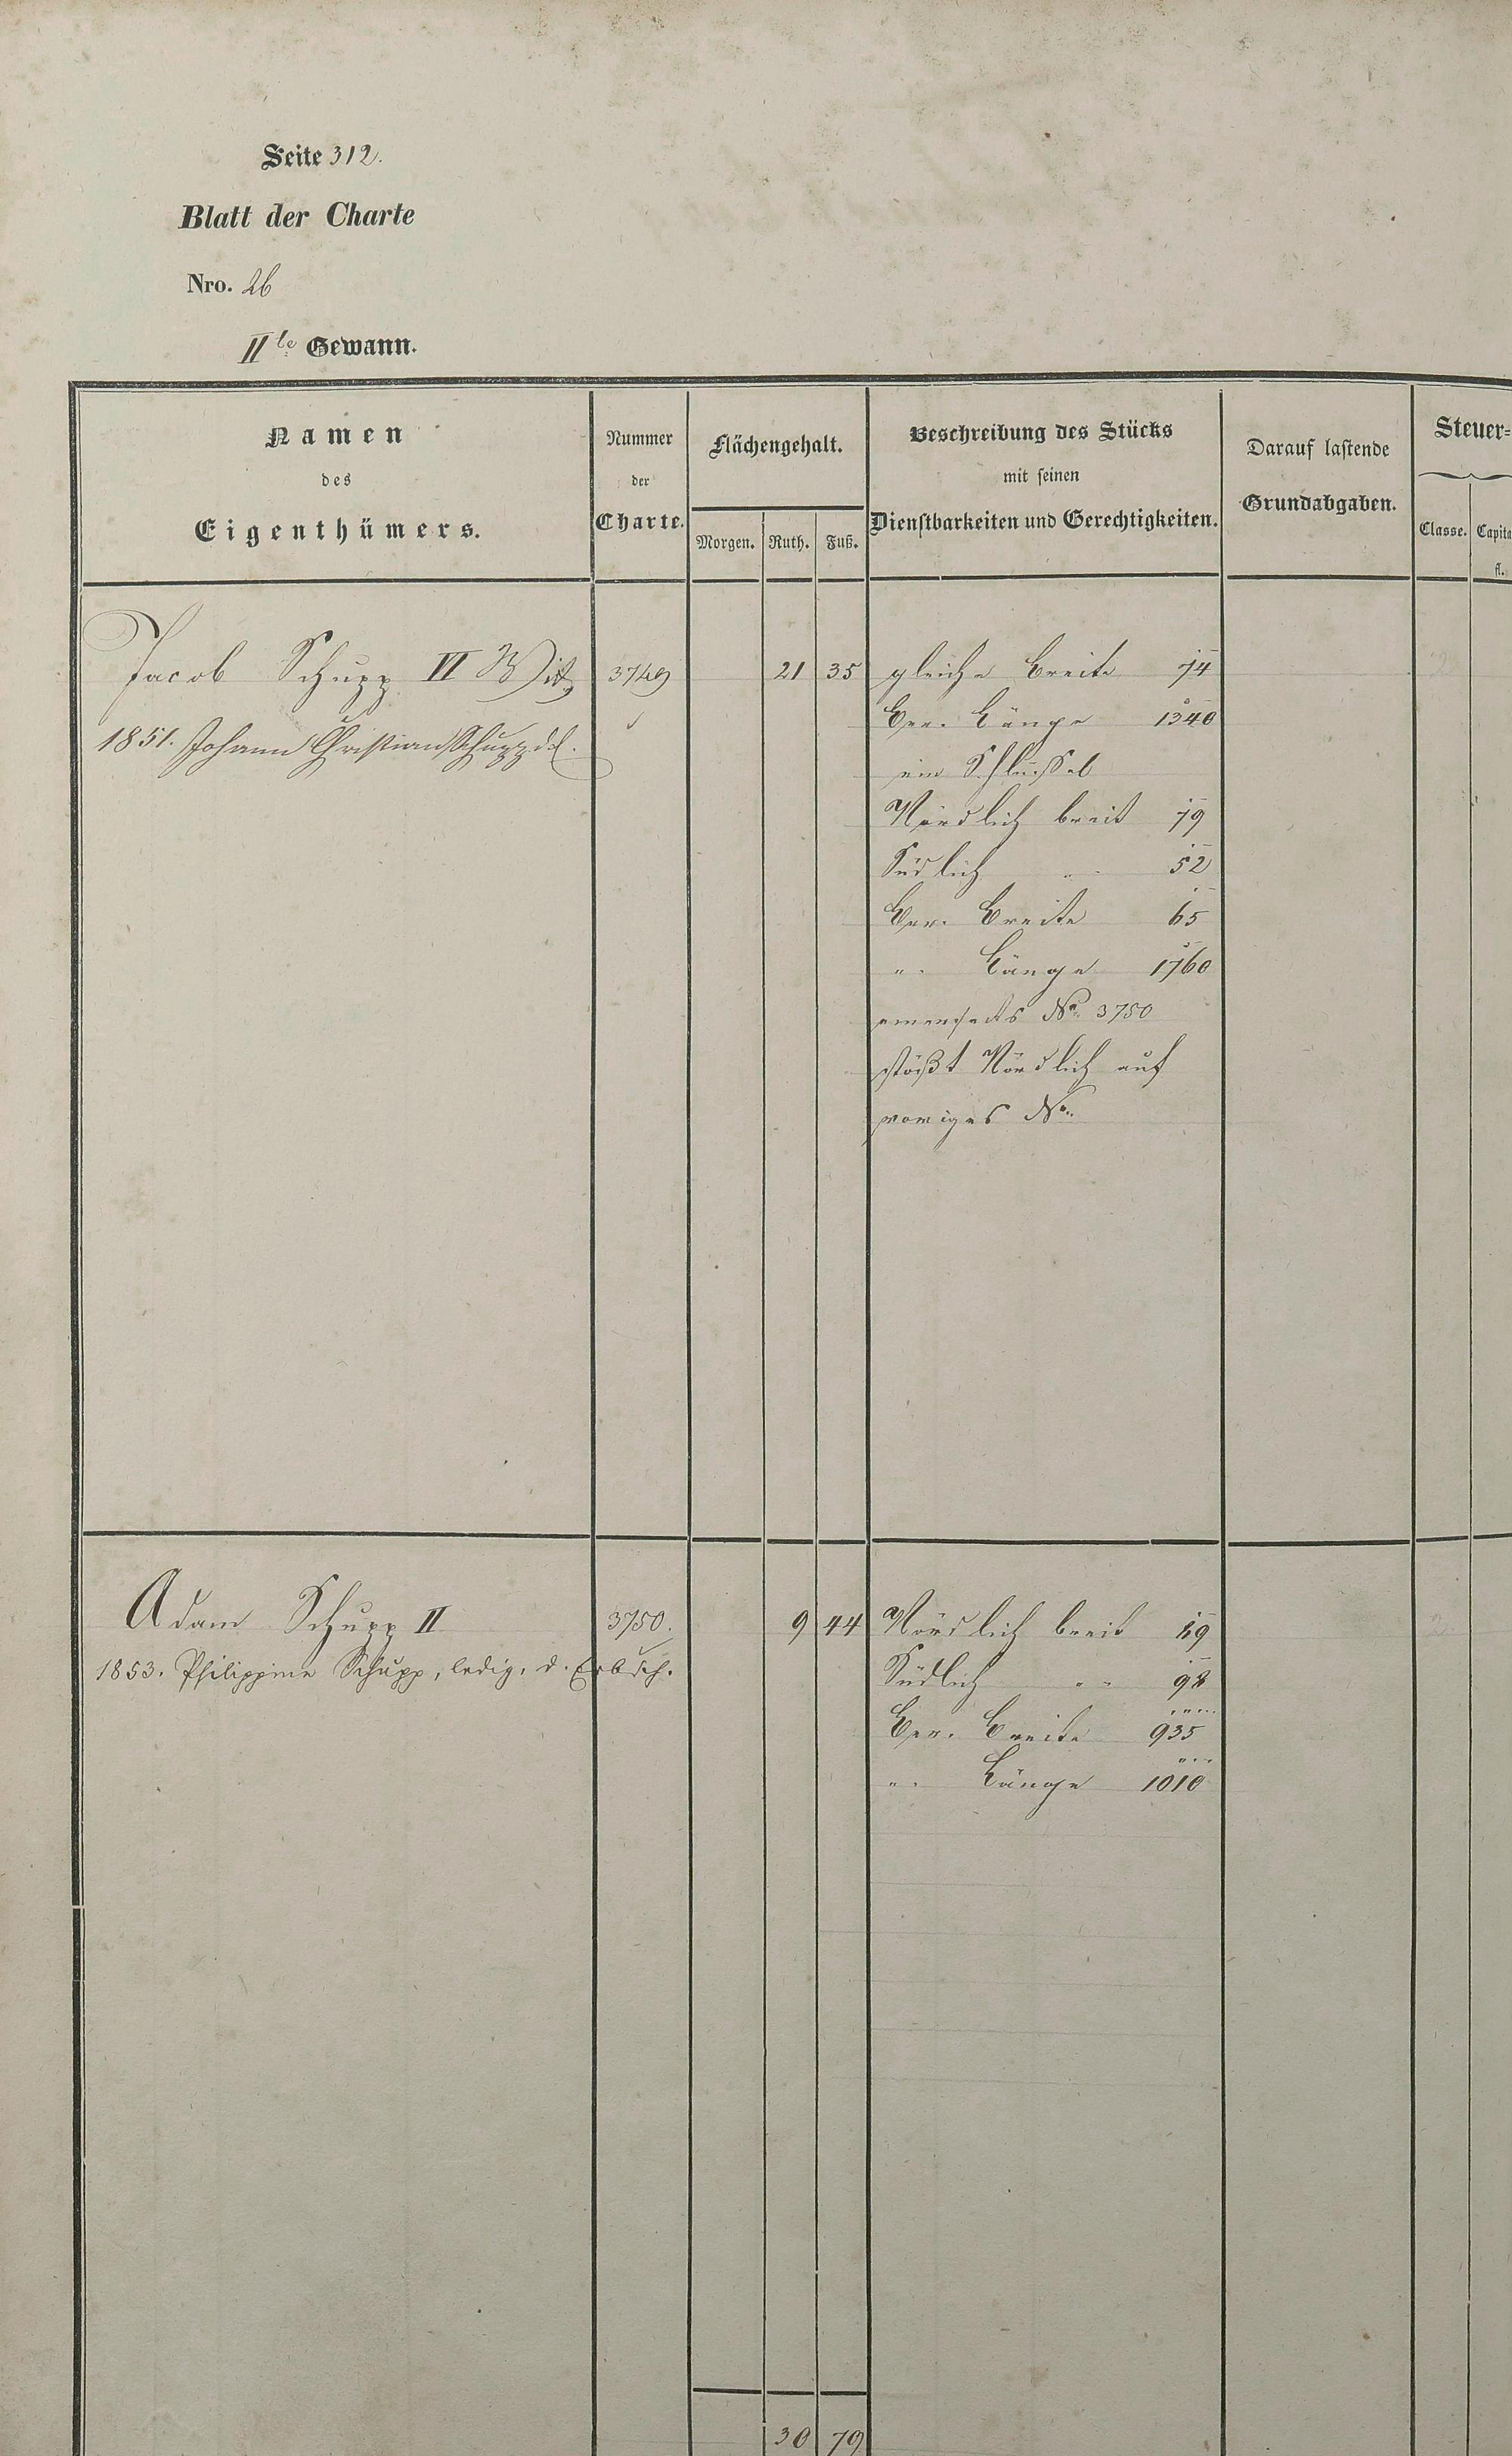 Seite 312.
Blatt der Charte
Nro. 26
II te Gewann.
Namen
des
Eigenthümers.
Nummer
der
Charte.
Flächengehalt.
Morgen. Ruth. Fuß.
Beschreibung des Stücks
mit seinen
Dienstbarkeiten und Gerechtigkeiten.
Darauf lastende
Grundabgaben.
Steuer=
Classe. Capita
fl.
Jacob Schupp VI Wit 3749 21 35 gleiche Breite 74
1851. Johann Christian Schupp
Ber. Länge 1340
ein Schlüssel
Nördlich breit 79
Südlich " 52
Ber. Breite 65
" Länge 1760
einerseits No 3750
stößt Nördlich auf
voriges No
Adam Schupp II 3750. 9 44 Nördlich breit 89
1853. Philippine Schupp, ledig, d. Erbsch.
Südlich " 98
Ber. Breite 935
" Länge 1010
30 79